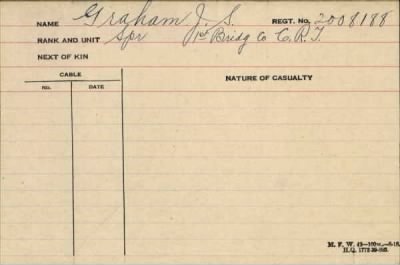 NAME Graham J. S. REGT. NO. 2008188
RANK AND UNIT Spr 1st Bridg Co C. R. T.
NEXT OF KIN
CABLE
NO. DATE
NATURE OF CASUALTY
M. F. W. 42—100M.—8-18.